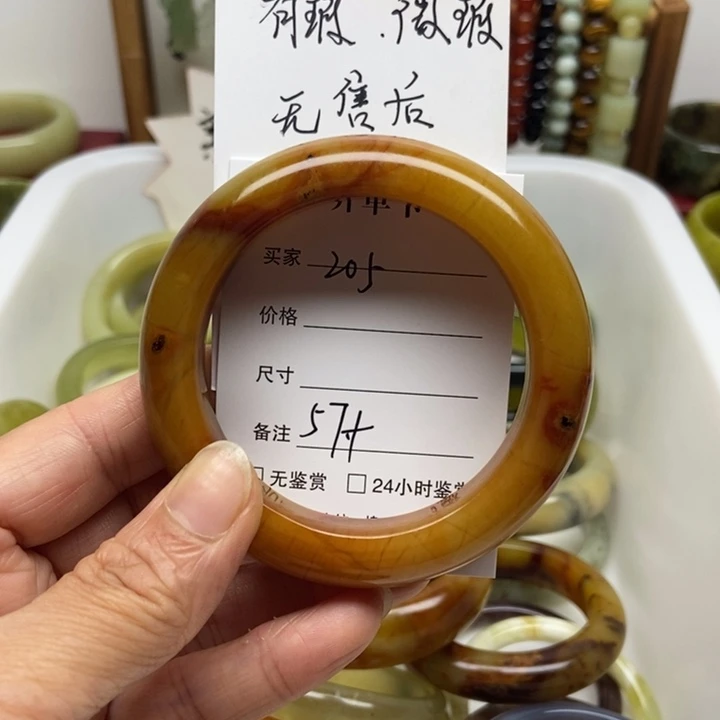 有瑕.微瑕
无售后
买家 205
价格
尺寸
备注 57#
□无鉴赏 □24小时鉴赏